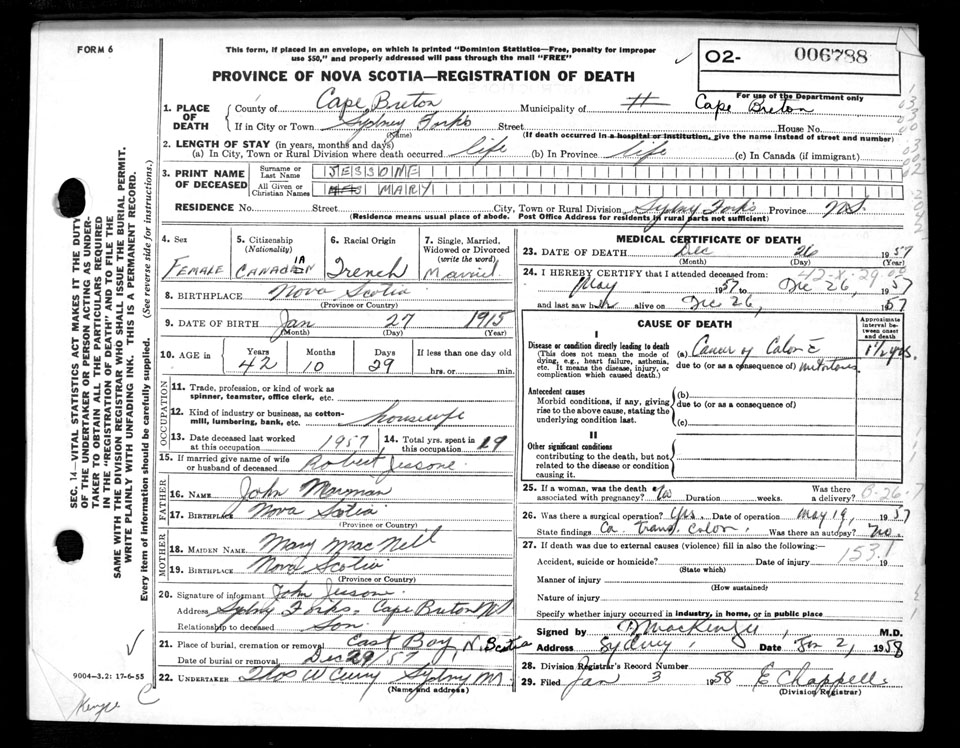 FORM 6
This form, if placed in an envelope, on which is printed "Dominion Statistics—Free, penalty for improper
use $50," and properly addressed will pass through the mail "FREE"
O2- 006788
For use of the Department only
PROVINCE OF NOVA SCOTIA—REGISTRATION OF DEATH
1. PLACE OF DEATH
County of Cape Breton Municipality of Cape Breton
If in City or Town Sydney Forks Street House No.
(Name) (If death occurred in a hospital or institution, give the name instead of street and number)
2. LENGTH OF STAY (in years, months and days)
(a) In City, Town or Rural Division where death occurred life (b) In Province life (c) In Canada (if immigrant)
3. PRINT NAME OF DECEASED
Surname or Last Name JESSOME
All Given or Christian Names MARY
RESIDENCE No. Street City, Town or Rural Division Sydney Forks Province N.S.
(Residence means usual place of abode. Post Office Address for residents in rural parts not sufficient)
4. Sex FEMALE
5. Citizenship (Nationality) CANADIAN
6. Racial Origin French
7. Single, Married, Widowed or Divorced (write the word) Married
8. BIRTHPLACE Nova Scotia
(Province or Country)
9. DATE OF BIRTH Jan 27 1915
(Month) (Day) (Year)
10. AGE in Years Months Days If less than one day
42 10 29 hrs. or min.
OCCUPATION
11. Trade, profession, or kind of work as
spinner, teamster, office clerk, etc.
12. Kind of industry or business, as cotton-
mill, lumbering, bank, etc. housewife
13. Date deceased last worked
at this occupation 1957 14. Total yrs. spent in this occupation 19
15. If married give name of wife
or husband of deceased Robert Jessome
FATHER
16. NAME John
17. BIRTHPLACE Nova Scotia
(Province or Country)
MOTHER
18. MAIDEN NAME Mary MacNeil
19. BIRTHPLACE Nova Scotia
(Province or Country)
20. Signature of informant John Jessome
Address Sydney Forks, Cape Breton N.S.
Relationship to deceased Son
21. Place of burial, cremation or removal East Bay N. Scotia
Date of burial or removal Dec 29 57
22. UNDERTAKER Thos W Curry Sydney
(Name and address)
MEDICAL CERTIFICATE OF DEATH
23. DATE OF DEATH Dec 26 1957
(Month) (Day) (Year)
24. I HEREBY CERTIFY that I attended deceased from
May 1957 to Dec 26, 1957
and last saw her alive on Dec 26, 1957
CAUSE OF DEATH
Approximate interval between onset and death
I
Disease or condition directly leading to death
(This does not mean the mode of dying, e.g., heart failure, asthenia, etc. It means the disease, injury, or complication which caused death.)
(a) Cancer of Colon 1½ yrs.
due to (or as a consequence of)
Antecedent causes
Morbid conditions, if any, giving rise to the above cause, stating the underlying condition last.
(b)
due to (or as a consequence of)
(c)
II
Other significant conditions
contributing to the death, but not related to the disease or condition causing it.
25. If a woman, was the death associated with pregnancy? No Duration weeks. Was there a delivery?
26. Was there a surgical operation? Yes. Date of operation May 19, 1957
State findings Ca trans. Colon Was there an autopsy? No.
27. If death was due to external causes (violence) fill in also the following:—
153.1
Accident, suicide or homicide? Date of injury 19
(State which)
Manner of injury
(How sustained)
Nature of injury
Specify whether injury occurred in industry, in home, or in public place
Signed by MacKenzie M.D.
Address Sydney Date Jan 2, 1958
28. Division Registrar's Record Number
29. Filed Jan 3 1958 E Chappell
(Division Registrar)
SEC. 14 VITAL STATISTICS ACT MAKES IT THE DUTY
OF THE UNDERTAKER OR PERSON ACTING AS UNDER-
TAKER TO OBTAIN ALL THE PARTICULARS REQUIRED
IN THE "REGISTRATION OF DEATH" AND TO FILE THE
SAME WITH THE DIVISION REGISTRAR WHO SHALL ISSUE THE BURIAL PERMIT.
WRITE PLAINLY WITH UNFADING INK. THIS IS A PERMANENT RECORD.
Every item of information should be carefully supplied. (See reverse side for instructions.)
9004—3.2: 17-6-55